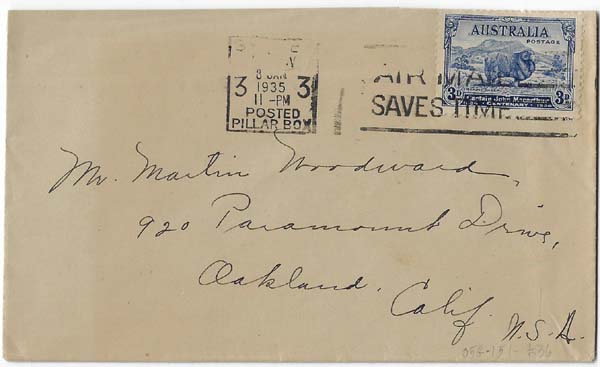 3 JAN
3 1935 3
11 -PM
POSTED
PILLAR BOX
AIR MAIL
SAVES TIME
AUSTRALIA
POSTAGE
3D Captain John Macarthur 3D
CENTENARY
Mr. Martin Woodward,
920 Paramount Drive,
Oakland.
Calif.
U.S.A.